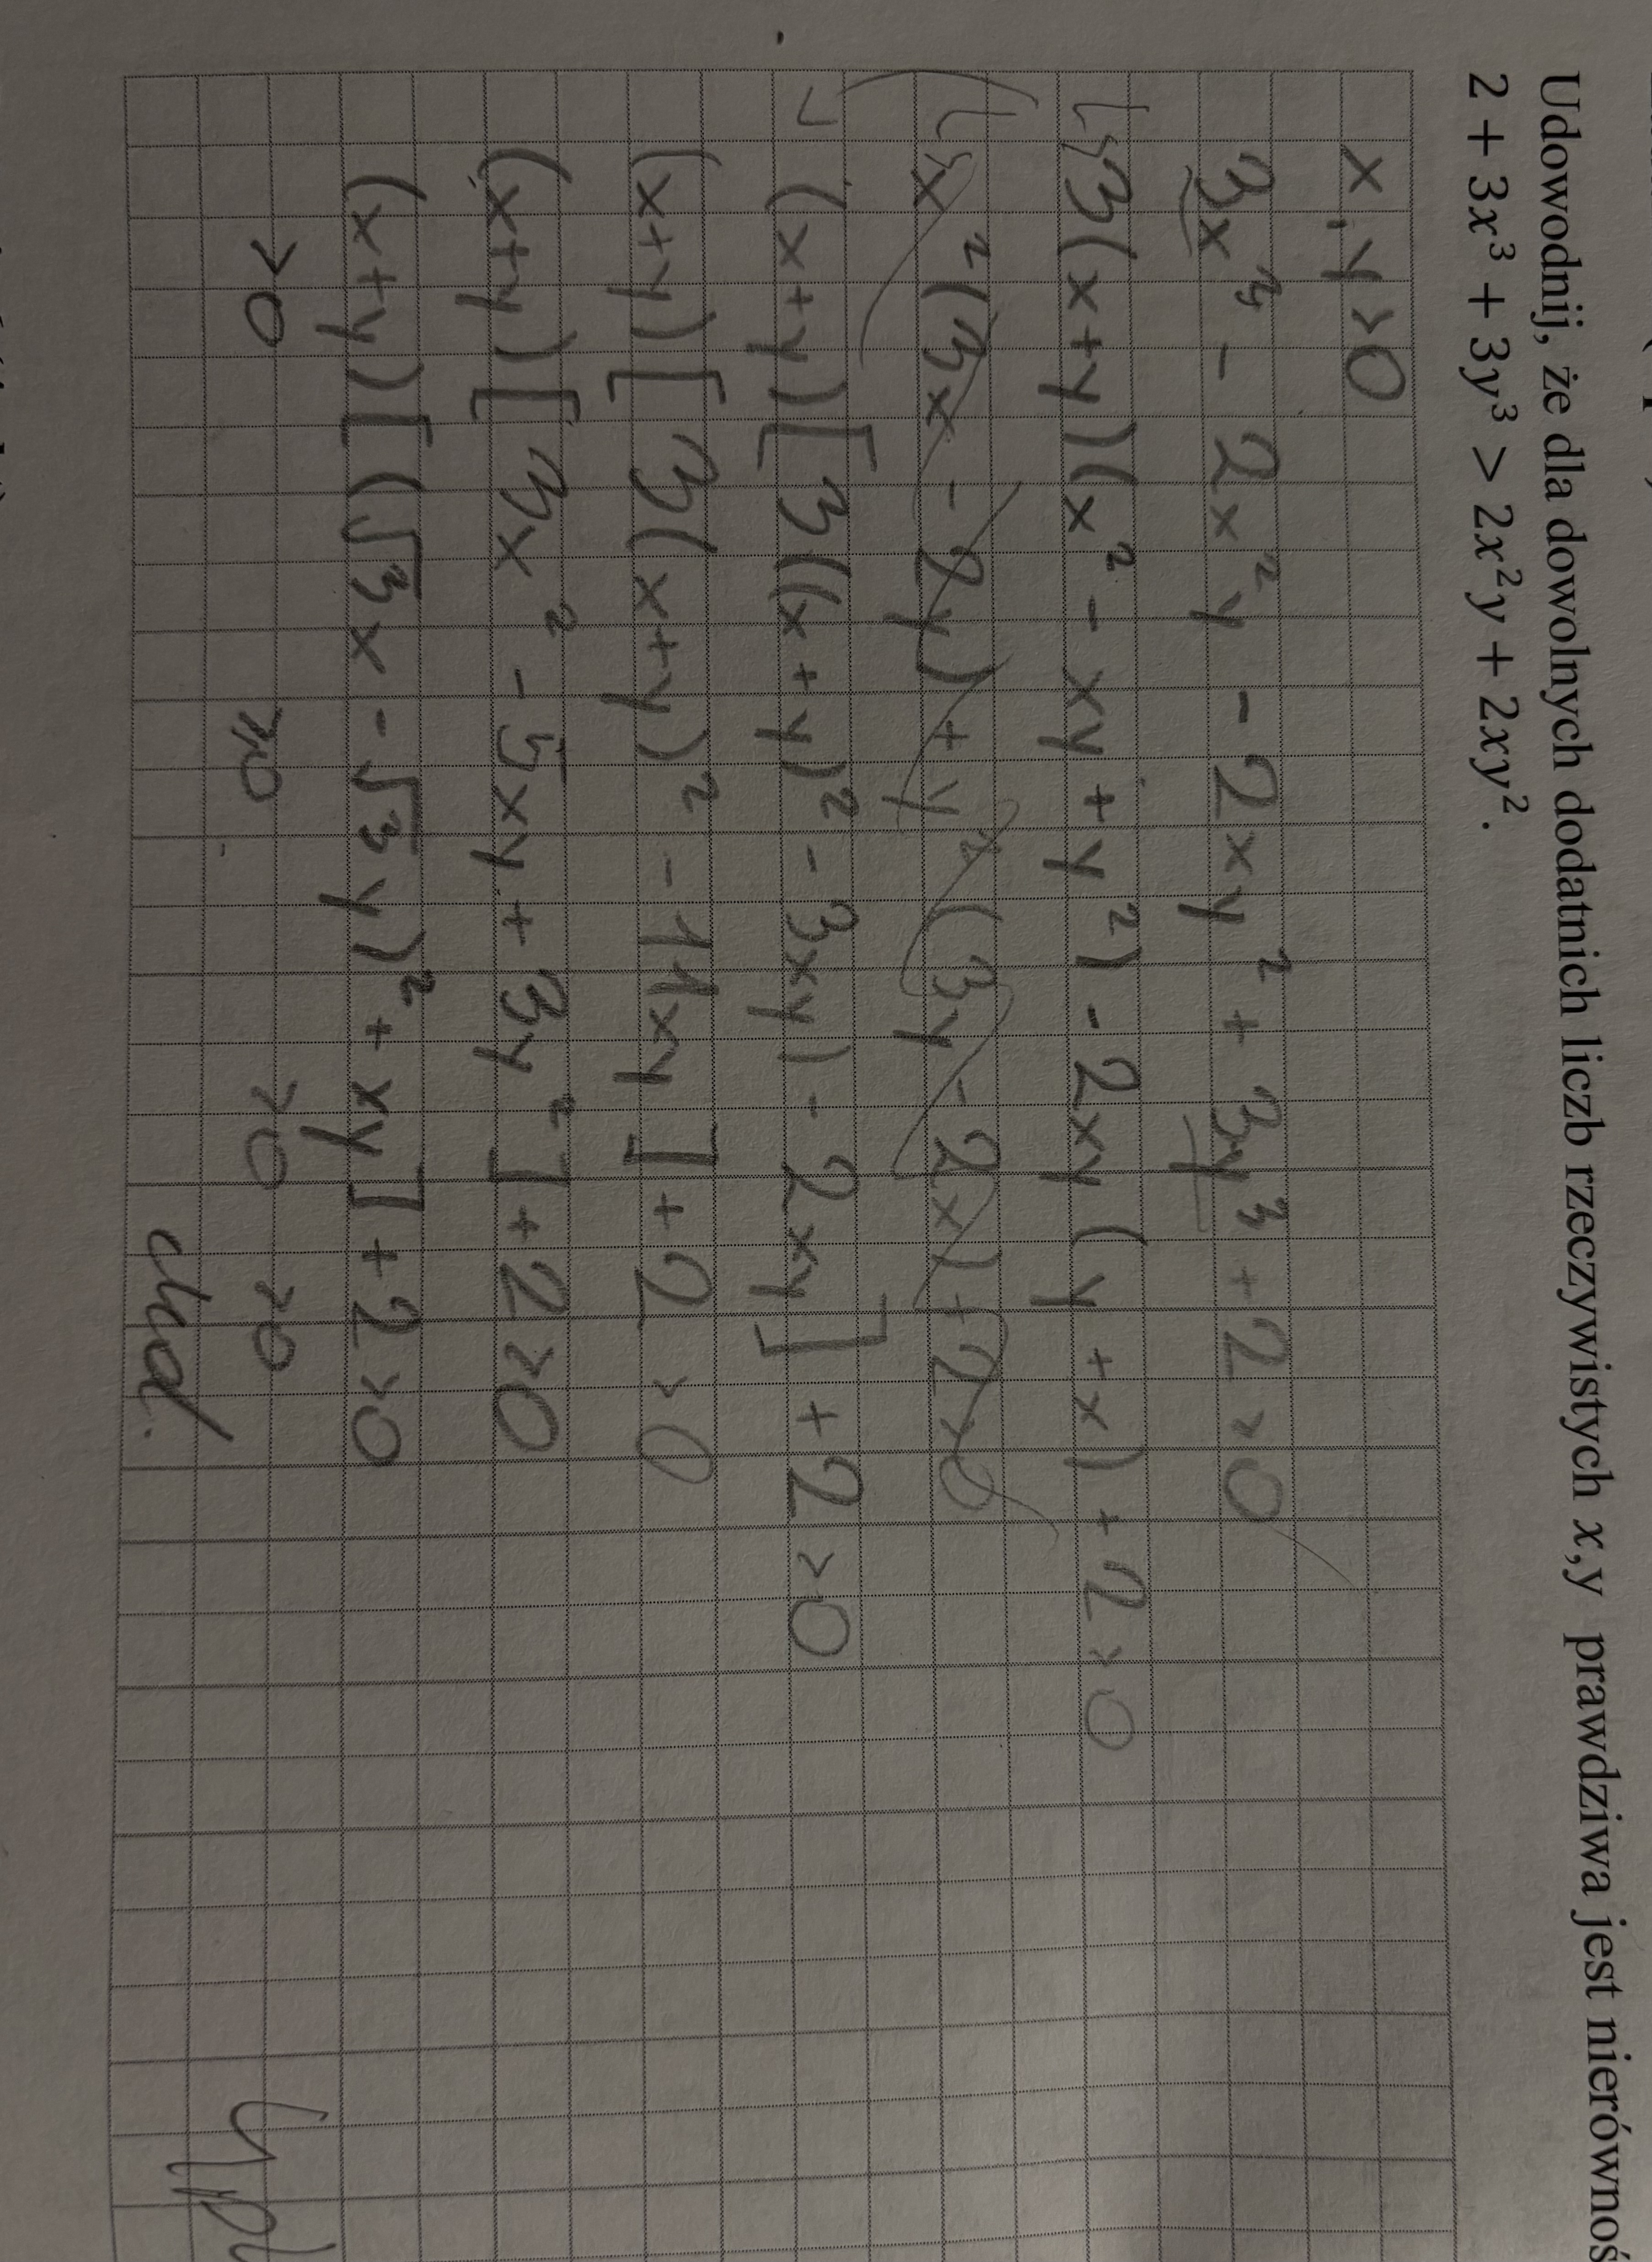 Udowodnij, że dla dowolnych dodatnich liczb rzeczywistych x,y prawdziwa jest nierównoś
2 + 3x³ + 3y³ > 2x²y + 2xy².
x,y>0
3x³ - 2x²y - 2xy² + 3y³ + 2 > 0
3(x+y)(x² - xy + y²) - 2xy(y+x) + 2 > 0
x²(3x - 2y) + y²(3y - 2x) + 2 > 0
(x+y)[3((x+y)² - 3xy) - 2xy] + 2 > 0
(x+y)[3(x+y)² - 11xy] + 2 > 0
(x+y)[3x² - 5xy + 3y²] + 2 > 0
(x+y)[(√3x - √3y)² + xy] + 2 > 0
>0 ≥0 >0 >0
cnd.